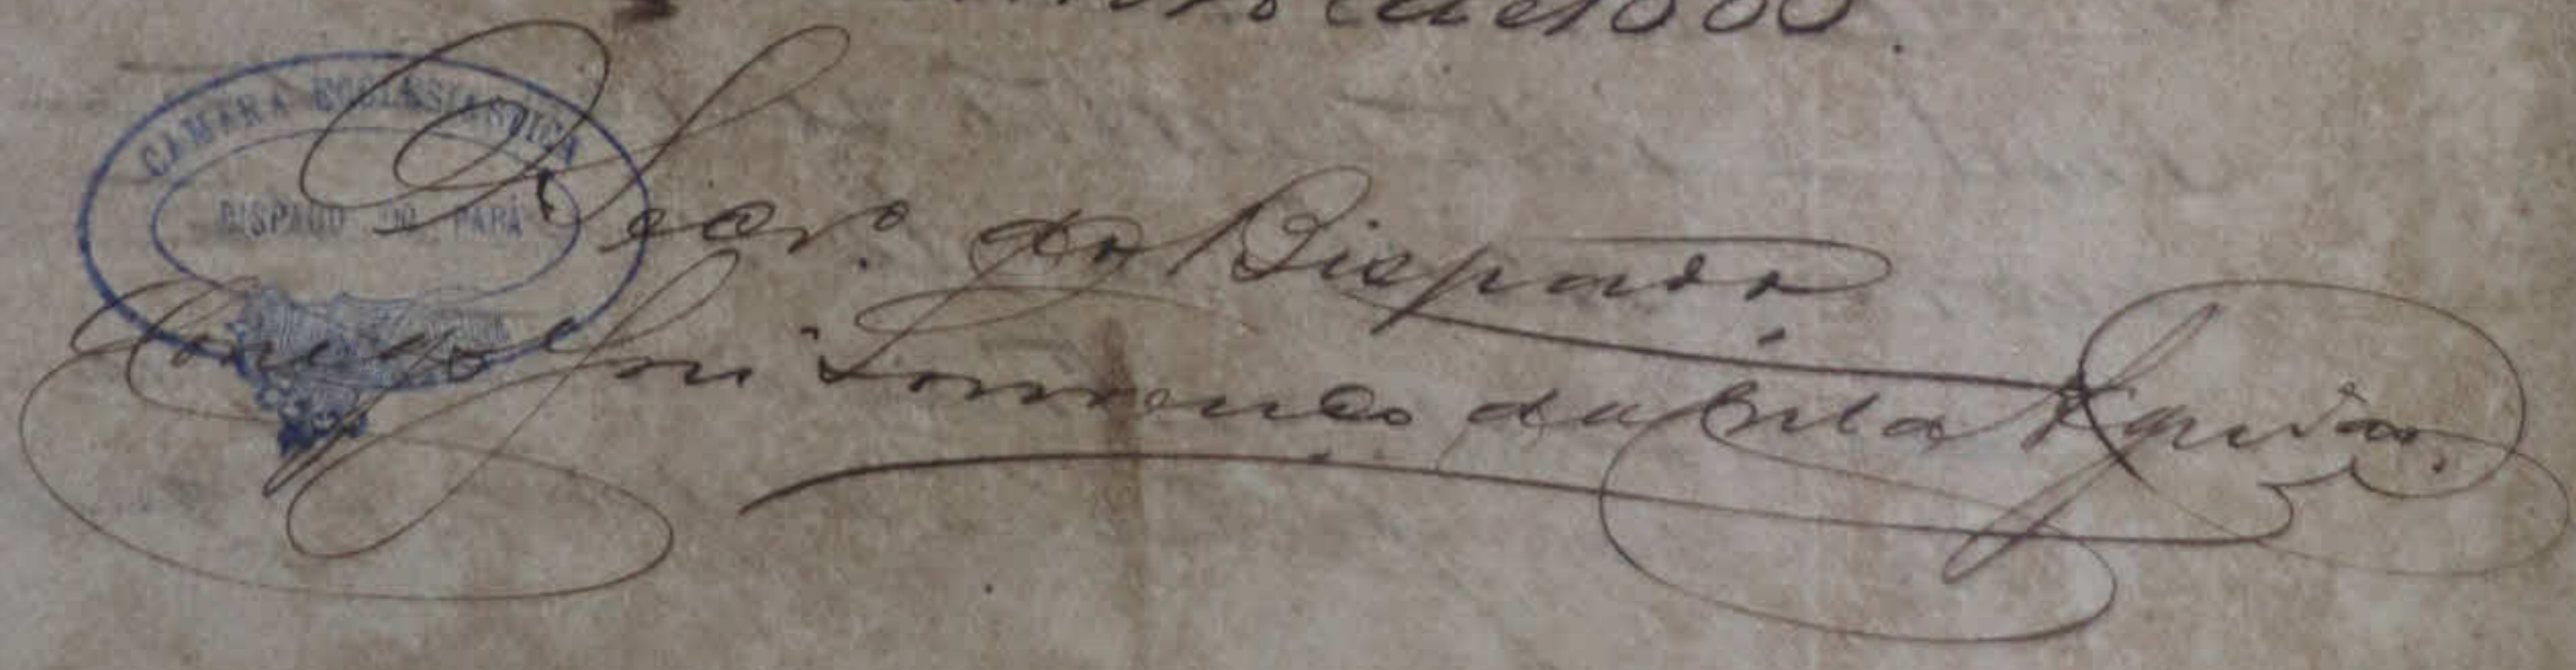 de 1880.
CAMARA ECCLESIASTICA
BISPADO DO PARÁ
O Secr.º do Bispado
Conego José Lourenço da Costa Aguiar